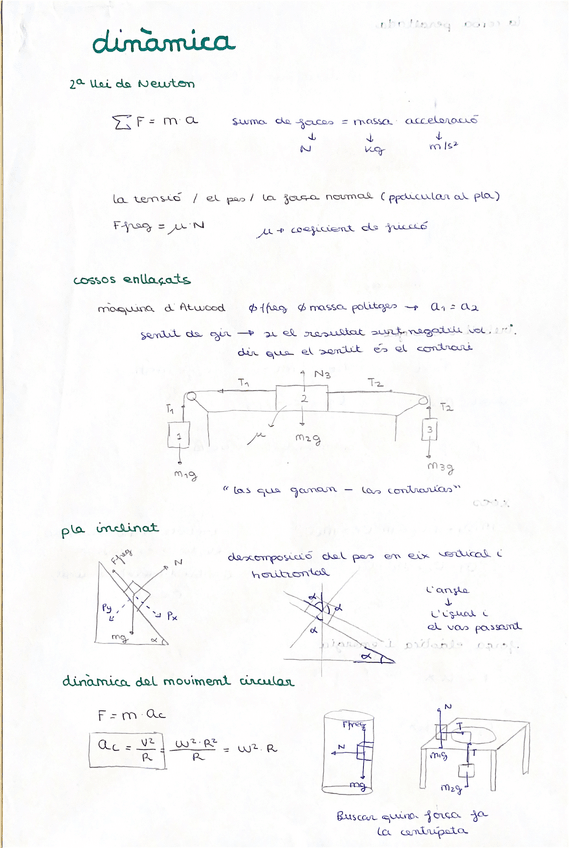 dinàmica
2ª llei de Newton
∑F = m·a suma de forces = massa · acceleració
↓ ↓ ↓
N kg m/s²
la tensió / el pes / la força normal (ppdicular al pla)
Ffreg = μ·N μ → coeficient de fricció
cossos enllaçats
màquina d'Atwood ∅ ffreg ∅ massa politges → a₁ = a₂
sentit de gir → si el resultat surt negatiu
dir que el sentit és el contrari
N3
T1 T2
T1 2 T2
1 3
μ m2g
m1g m3g
"las que ganan - las contrarias"
pla inclinat
descomposició del pes en eix vertical i
horitzontal
Ffreg N
Py Px
mg α
α α
α
α
l'angle
↓
l'igual i
el vas passant
dinàmica del moviment circular
F = m·ac
ac = v²/R = ω²·R²/R = ω²·R
Ffreg
N
mg
N
T
m1g T
m2g
Buscar quina força fa
la centrípeta